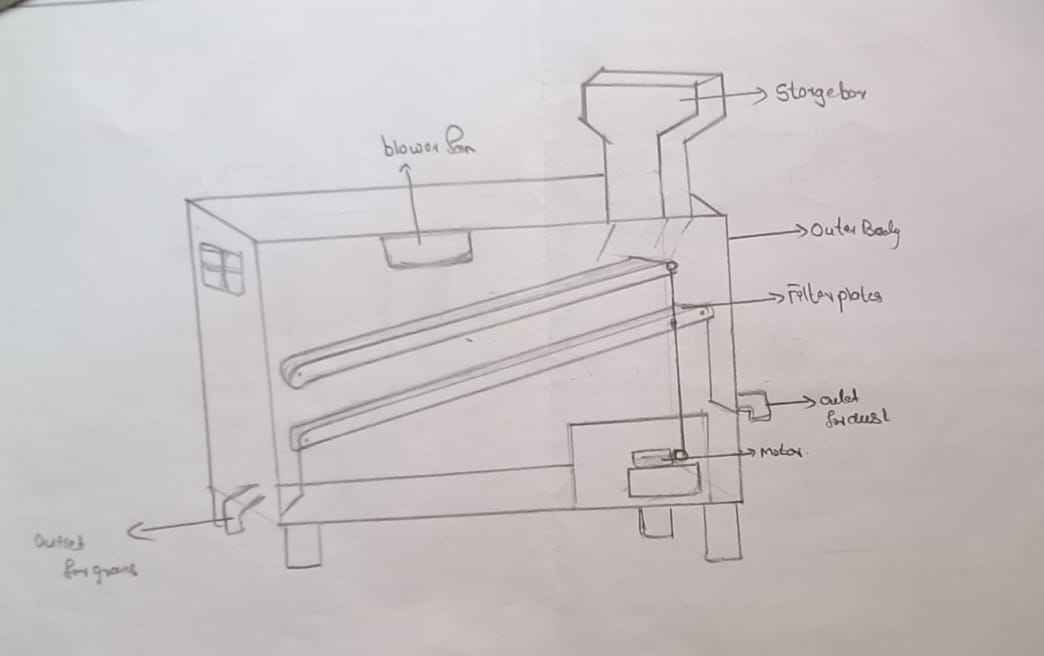 Storgebox
blower fan
Outer Body
Filter plates
outlet
for dust
Motor
Outlet
for grains